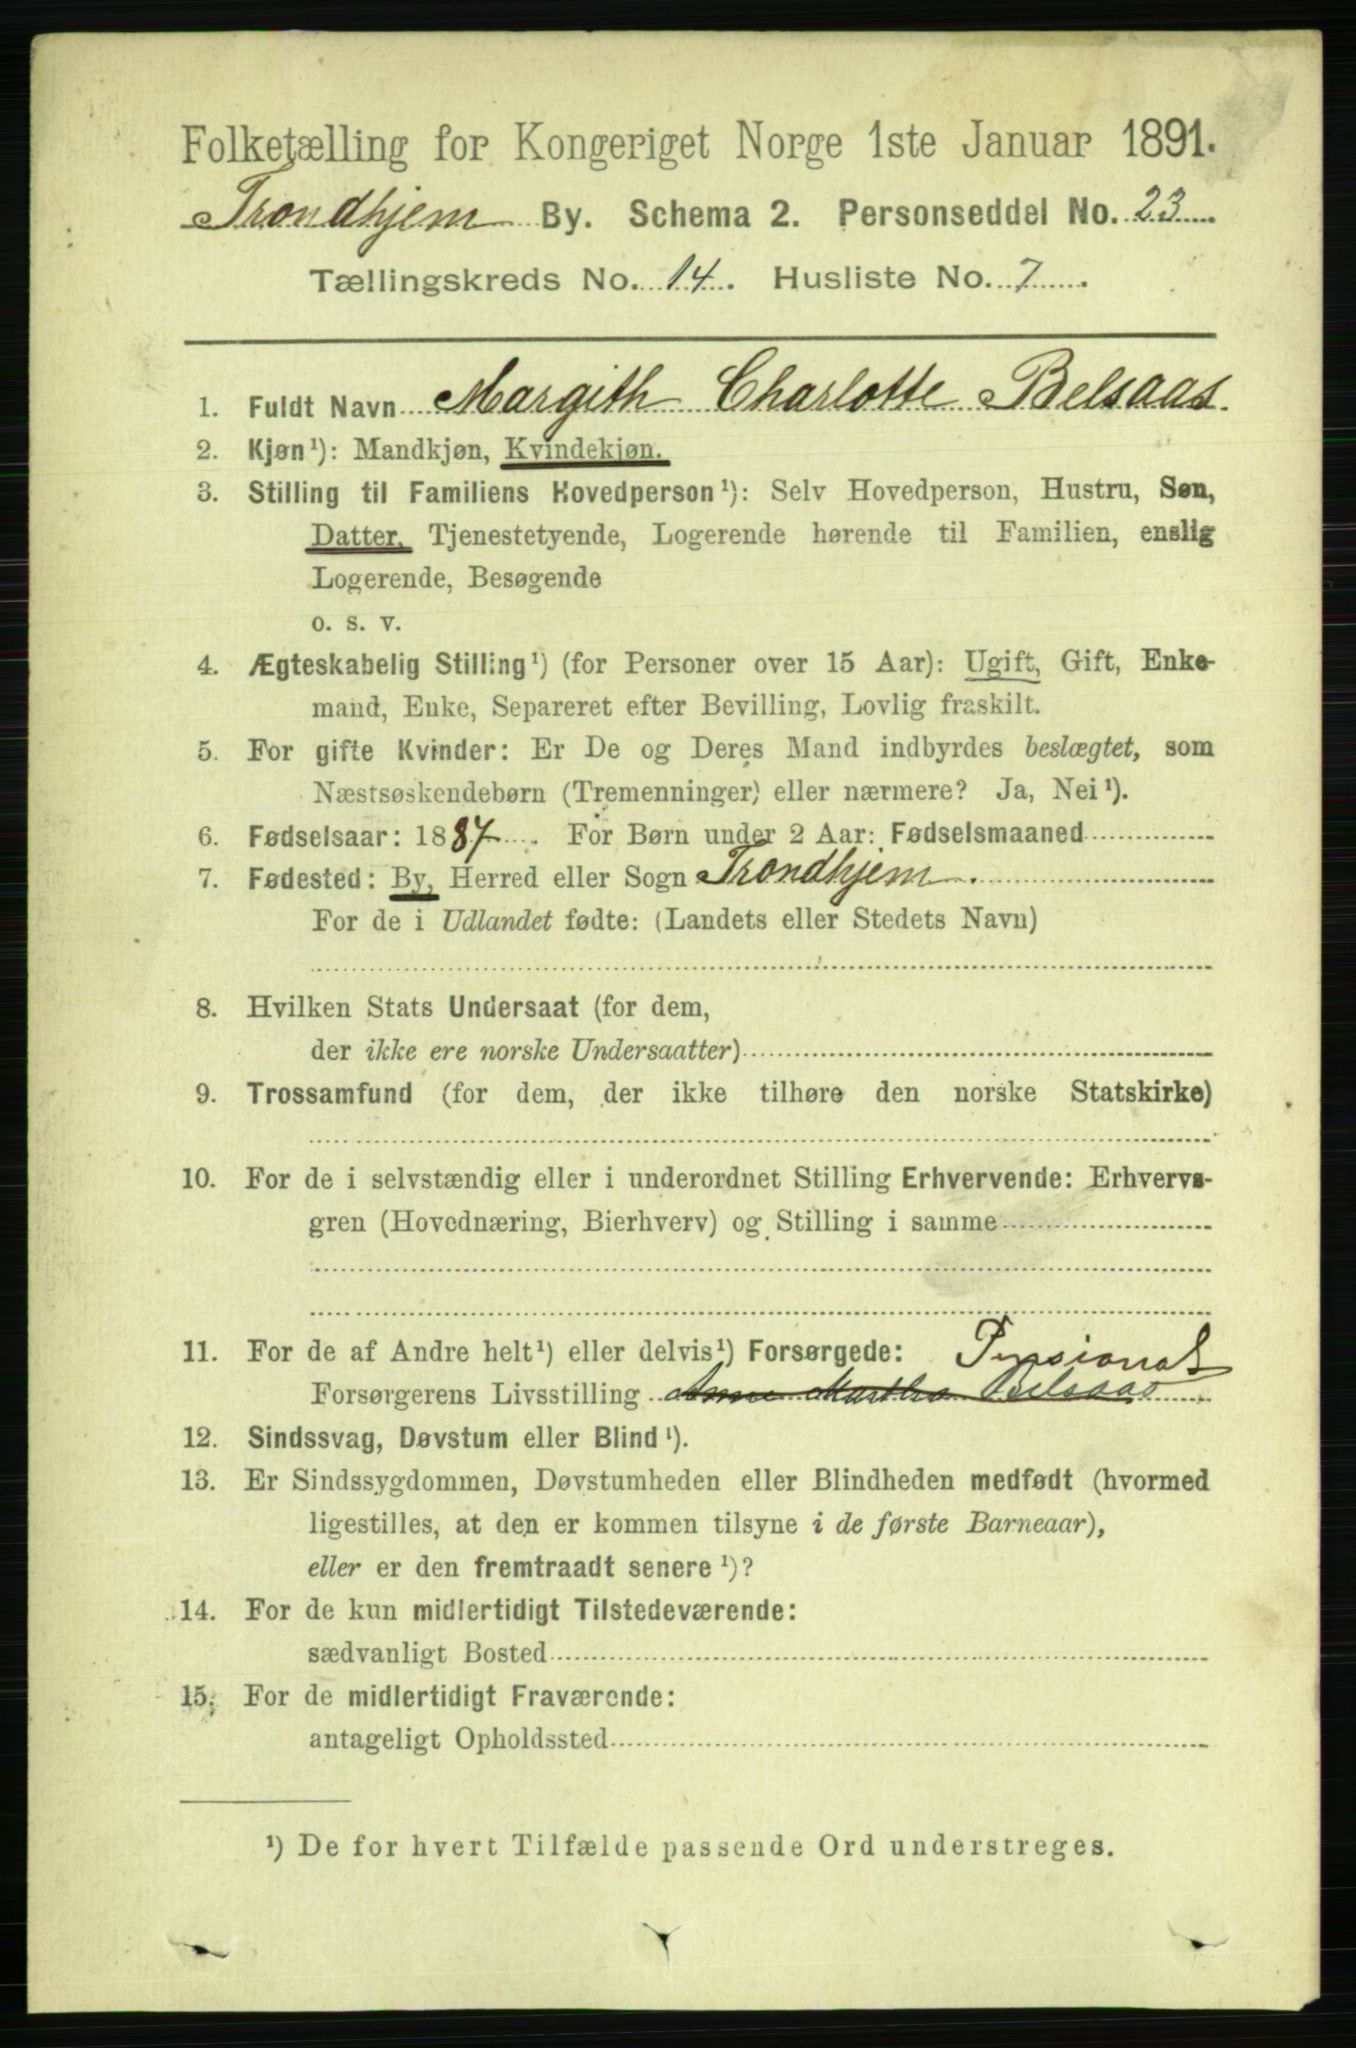 Folketælling for Kongeriget Norge 1ste Januar 1891.
Trondhjem By. Schema 2. Personseddel No. 23
Tællingskreds No. 14. Husliste No. 7
1. Fuldt Navn Margith Charlotte Belsaas.
2. Kjøn¹): Mandkjøn, Kvindekjøn.
3. Stilling til Familiens Hovedperson¹): Selv Hovedperson, Hustru, Søn,
Datter, Tjenestetyende, Logerende hørende til Familien, enslig
Logerende, Besøgende
o. s. v.
4. Ægteskabelig Stilling¹) (for Personer over 15 Aar): Ugift, Gift, Enke-
mand, Enke, Separeret efter Bevilling, Lovlig fraskilt.
5. For gifte Kvinder: Er De og Deres Mand indbyrdes beslægtet, som
Næstsøskendebørn (Tremenninger) eller nærmere? Ja, Nei¹).
6. Fødselsaar: 1887. For Børn under 2 Aar: Fødselsmaaned
7. Fødested: By, Herred eller Sogn Trondhjem.
For de i Udlandet fødte: (Landets eller Stedets Navn)
8. Hvilken Stats Undersaat (for dem,
der ikke ere norske Undersaatter)
9. Trossamfund (for dem, der ikke tilhøre den norske Statskirke)
10. For de i selvstændig eller i underordnet Stilling Erhvervende: Erhvervs-
gren (Hovednæring, Bierhverv) og Stilling i samme
11. For de af Andre helt¹) eller delvis¹) Forsørgede: Pensionat
Forsørgerens Livsstilling Anne Martha Belsaas
12. Sindssvag, Døvstum eller Blind¹).
13. Er Sindssygdommen, Døvstumheden eller Blindheden medfødt (hvormed
ligestilles, at den er kommen tilsyne i de første Barneaar),
eller er den fremtraadt senere¹)?
14. For de kun midlertidigt Tilstedeværende:
sædvanligt Bosted
15. For de midlertidigt Fraværende:
antageligt Opholdssted
¹) De for hvert Tilfælde passende Ord understreges.